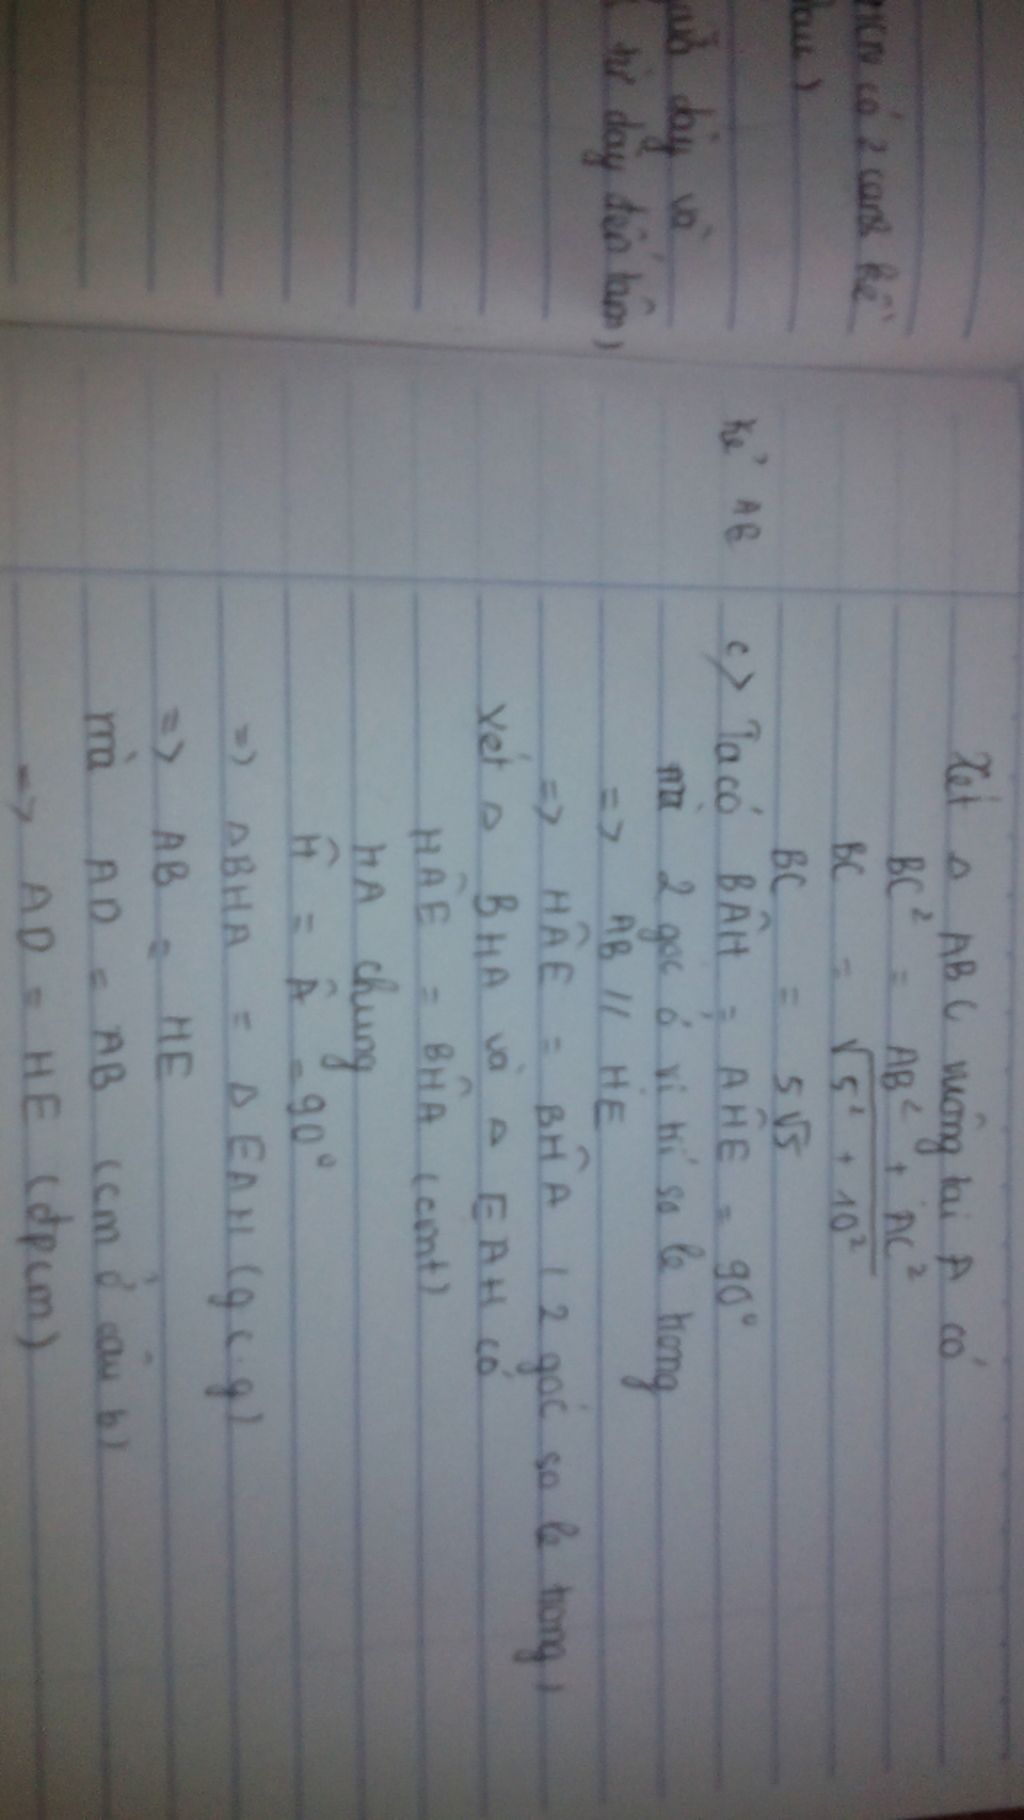 có 2 cạnh kề
dây và
từ dây đến tâm)
Xét Δ ABC vuông tại A có
BC² = AB² + AC²
BC = √5² + 10²
BC = 5√5
kẻ AB
c> Ta có BÂH = AĤE = 90°
mà 2 góc ở vị trí so le trong
=> AB // HE
=> HÂE = BĤA ( 2 góc so le trong)
Xét Δ BHA và Δ EAH có
HÂE = BĤA (cmt)
HA chung
Ĥ = Â = 90°
=> Δ BHA = Δ EAH (g.c.g)
=> AB = HE
mà AD = AB (cm ở câu b)
=> AD = HE (đpcm)